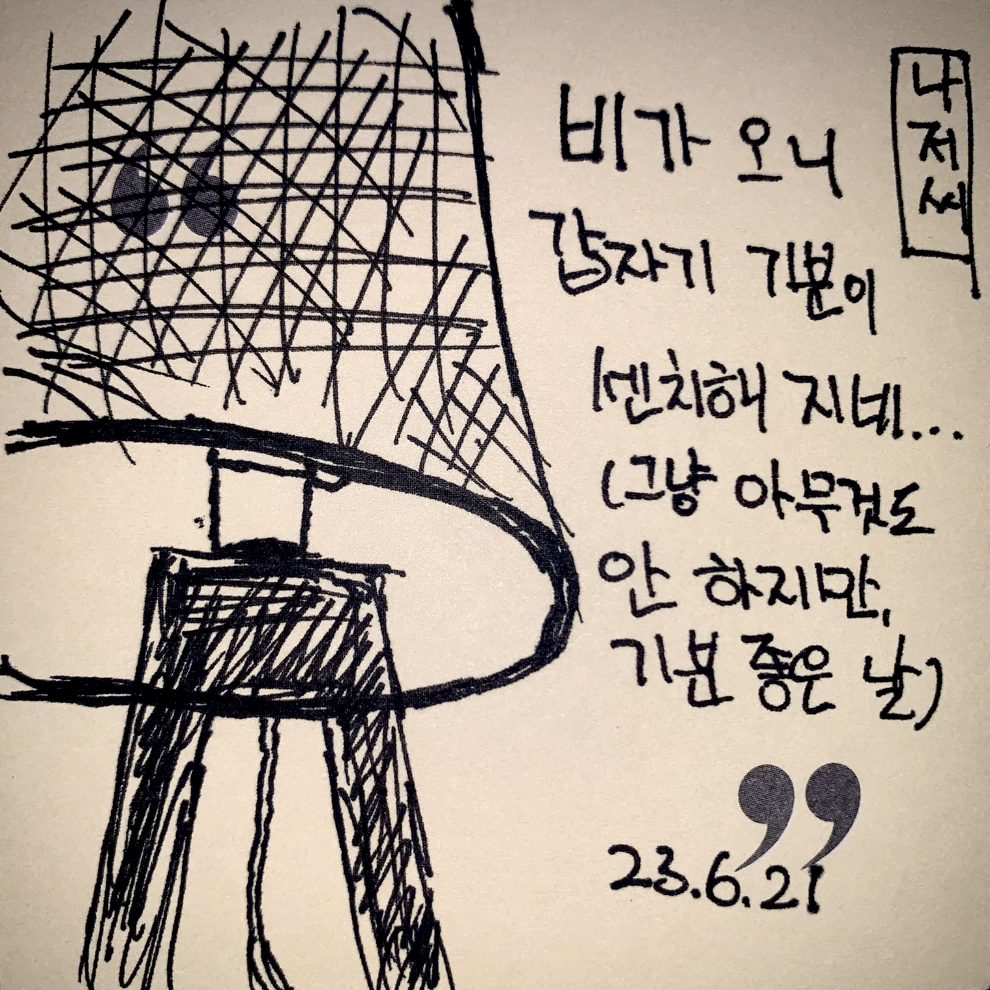 비가 오니
갑자기 기분이
센치해 지네...
(그냥 아무것도
안 하지만,
기분 좋은 날)
23.6.21
나
저
씨